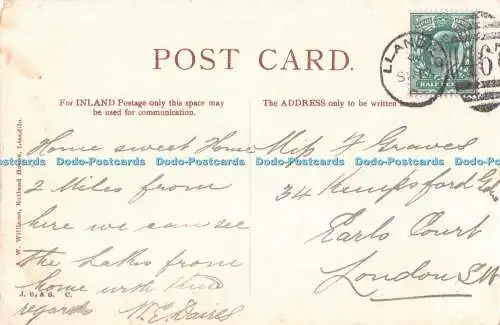 POST CARD.
LLAND
HALF PE
For INLAND Postage only this space may
be used for communication.
The ADDRESS only to be written
Home sweet Home
2 Miles from
here we can see
the Lakes from
home with kind
regards N. E. Davies
Miss F Graves
34 Kempsford Gdns
Earls Court
London S.W
W. Williams, Rutland House, Llandilo.
J. B. & S. C.
Dodo-Postcards Dodo-Postcards Dodo-Postcards Dodo-Postcards Dodo-Postcards Dodo-Postcards